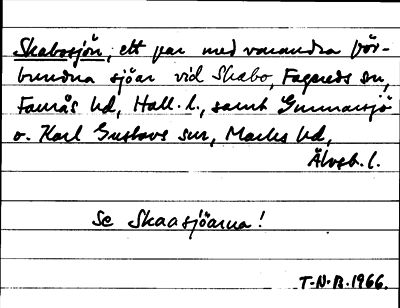 Skabosjön, ett par med varandra för-
bundna sjöar vid Skabo, Fagereds sn,
Faurås hd, Hall. l., samt Gunnarsjö
o. Karl Gustavs snr, Marks hd,
Älvsb. l.
Se Skaasjöarna!
T-N-B. 1966.